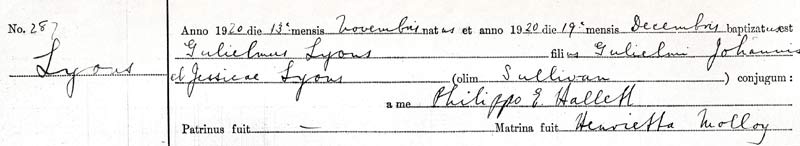 No. 287 Anno 1920 die 13º mensis Novembris natus et anno 1920 die 19º mensis Decembris baptizatus est
Lyons Gulielmus Lyons filius Gulielmi Johannis
et Jessicae Lyons (olim Sullivan) conjugum :
a me Philippo E Hallett
Patrinus fuit — Matrina fuit Henrietta Molloy